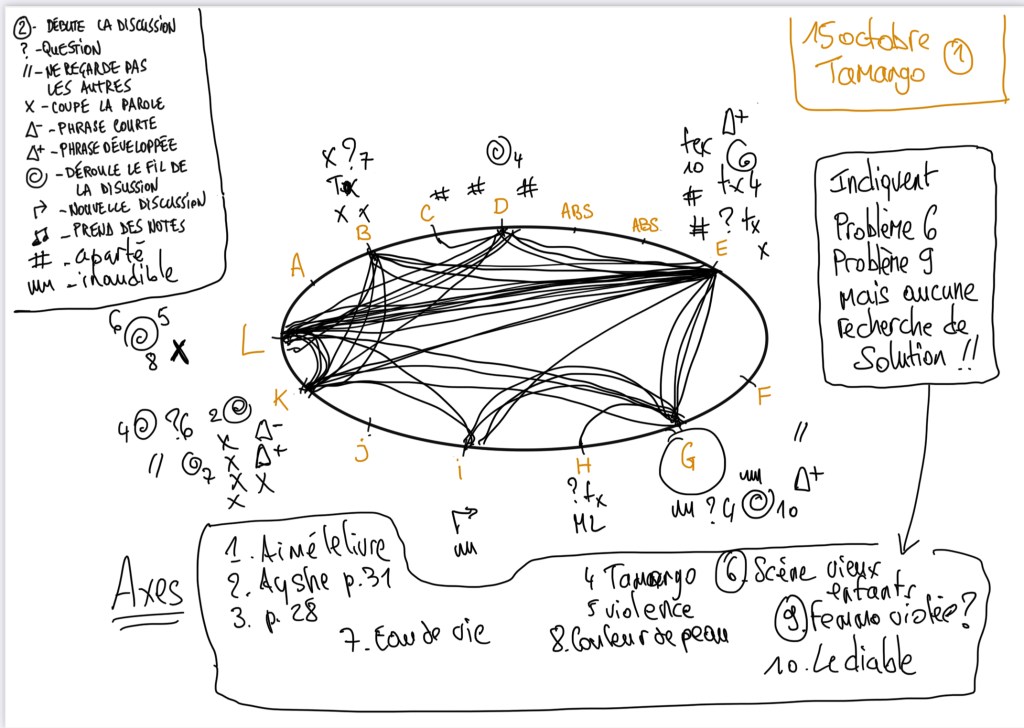 ②- DÉBUTE LA DISCUSSION
? -QUESTION
// -NE REGARDE PAS
LES AUTRES
X - COUPE LA PAROLE
Δ- - PHRASE COURTE
Δ+ - PHRASE DÉVELOPPÉE
- DÉROULE LE FIL DE
LA DISUSSION
- NOUVELLE DISCUSSION
- PREND DES NOTES
# - aparté
- inaudible
15 octobre
Tamango ①
Indiquent
Problème 6
Problène 9
mais aucune
recherche de
Solution !!
X ? 7
X X
4
# # #
Δ+
tex
10
# tx 4
# ? tx
X
A
B
C
D
ABS
ABS.
E
F
G
H
i
j
K
L
6 5
8 X
4 ?6 2
X Δ-
// 7 X Δ+
X X
X
? tx
ML
//
Δ+
? 4 10
Axes
1. Aimé le livre
2. Ayshe p.31
3. p. 28
4 Tamango
5 violence
⑥. Scène vieux
enfants
7. Eau de vie
8. Couleur de peau
⑨. Femme violée?
10. Le diable